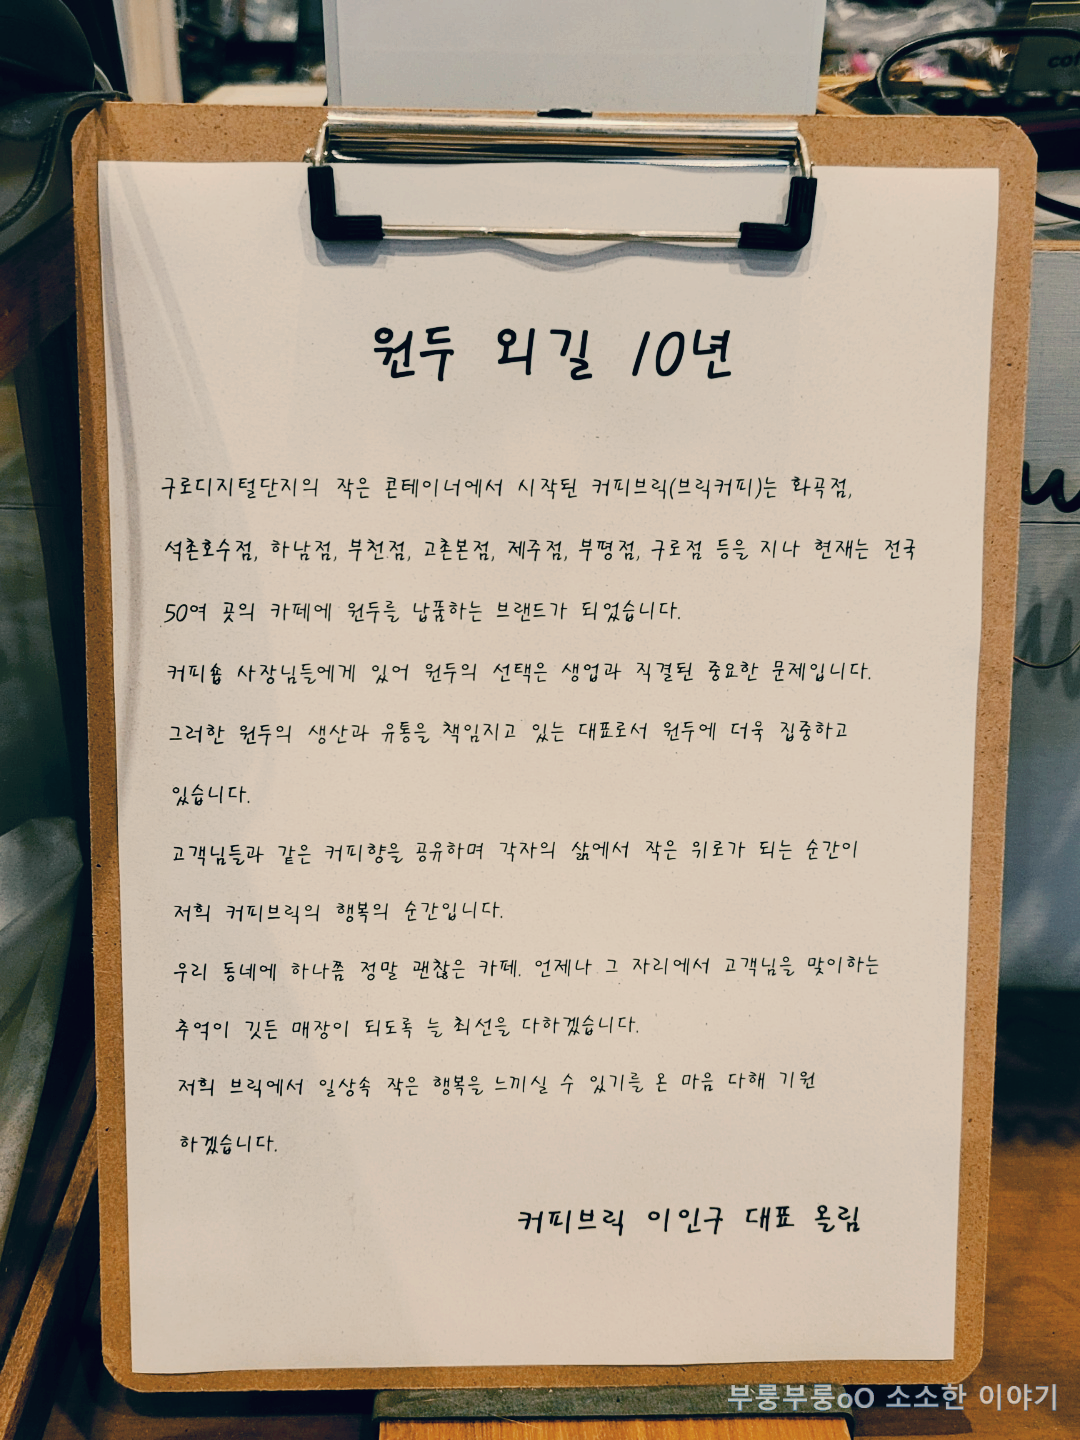 원두 외길 10년
구로디지털단지의 작은 콘테이너에서 시작된 커피브릭(브릭커피)는 화곡점,
석촌호수점, 하남점, 부천점, 고촌본점, 제주점, 부평점, 구로점 등을 지나 현재는 전국
50여 곳의 카페에 원두를 납품하는 브랜드가 되었습니다.
커피숍 사장님들에게 있어 원두의 선택은 생업과 직결된 중요한 문제입니다.
그러한 원두의 생산과 유통을 책임지고 있는 대표로서 원두에 더욱 집중하고
있습니다.
고객님들과 같은 커피향을 공유하며 각자의 삶에서 작은 위로가 되는 순간이
저희 커피브릭의 행복의 순간입니다.
우리 동네에 하나쯤 정말 괜찮은 카페. 언제나 그 자리에서 고객님을 맞이하는
추억이 깃든 매장이 되도록 늘 최선을 다하겠습니다.
저희 브릭에서 일상속 작은 행복을 느끼실 수 있기를 온 마음 다해 기원
하겠습니다.
커피브릭 이인구 대표 올림
부룽부룽oO 소소한 이야기